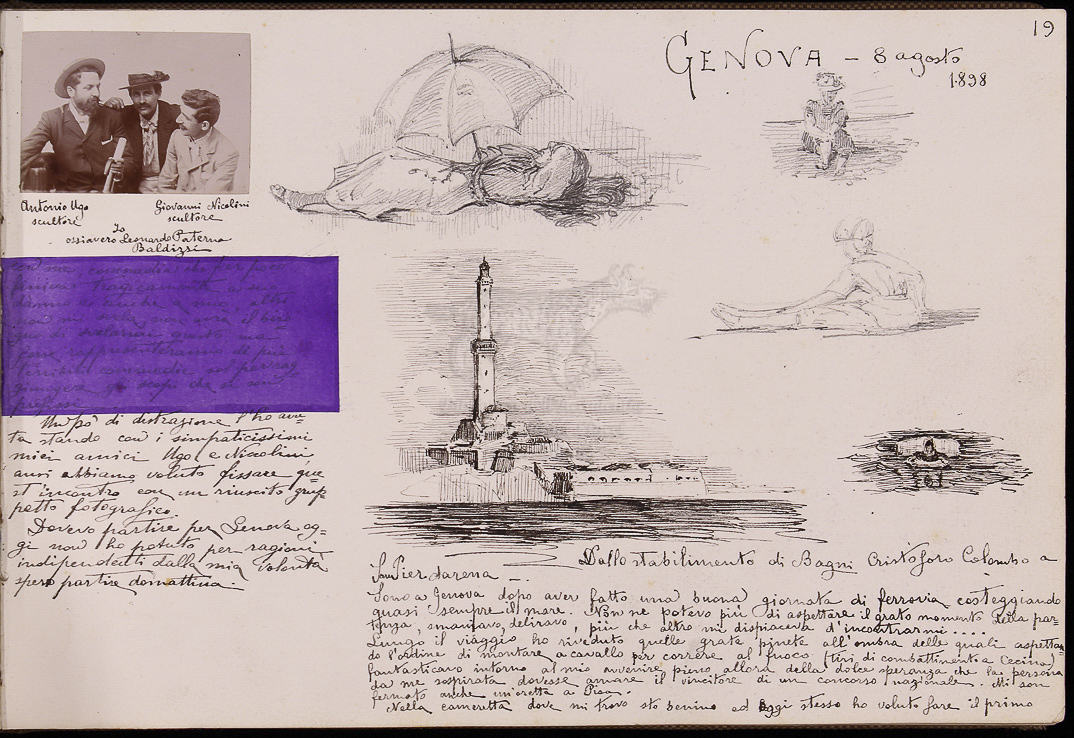 19
GENOVA – 8 agosto
1898
Antonio Ugo
scultore
Giovanni Nicolini
scultore
Io
ossiavero Leonardo Paterna
Baldizzi
Un pò di distrazione l'ho avu-
ta stando con i simpaticissimi
miei amici Ugo e Nicolini
anzi abbiamo voluto fissare que-
st'incontro con un riuscito grup-
petto fotografico.
Dovevo partire per Genova og-
gi non ho potuto per ragioni
indipendenti dalla mia volontà
spero partire domattina.
Dallo stabilimento di Bagni Cristoforo Colombo a
San Pier d'arena –.
Sono a Genova dopo aver fatto una buona giornata di ferrovia costeggiando
quasi sempre il mare. Non ne potevo più di aspettare il grato momento della par-
tenza, smaniavo, deliravo, più che altro mi dispiaceva d'incontrarmi....
Lungo il viaggio ho riveduto quelle grate pinete all'ombra delle quali aspettan-
do l'ordine di montare a cavallo per correre al fuoco (tiri di combattimento a Cecina)
fantasticavo intorno al mio avvenire pieno allora della dolce speranza che la persona
da me sospirata dovesse amare il vincitore di un concorso nazionale. Mi son
fermato anche un'oretta a Pisa.
Nella cameretta dove mi trovo sto benino ed oggi stesso ho voluto fare il primo